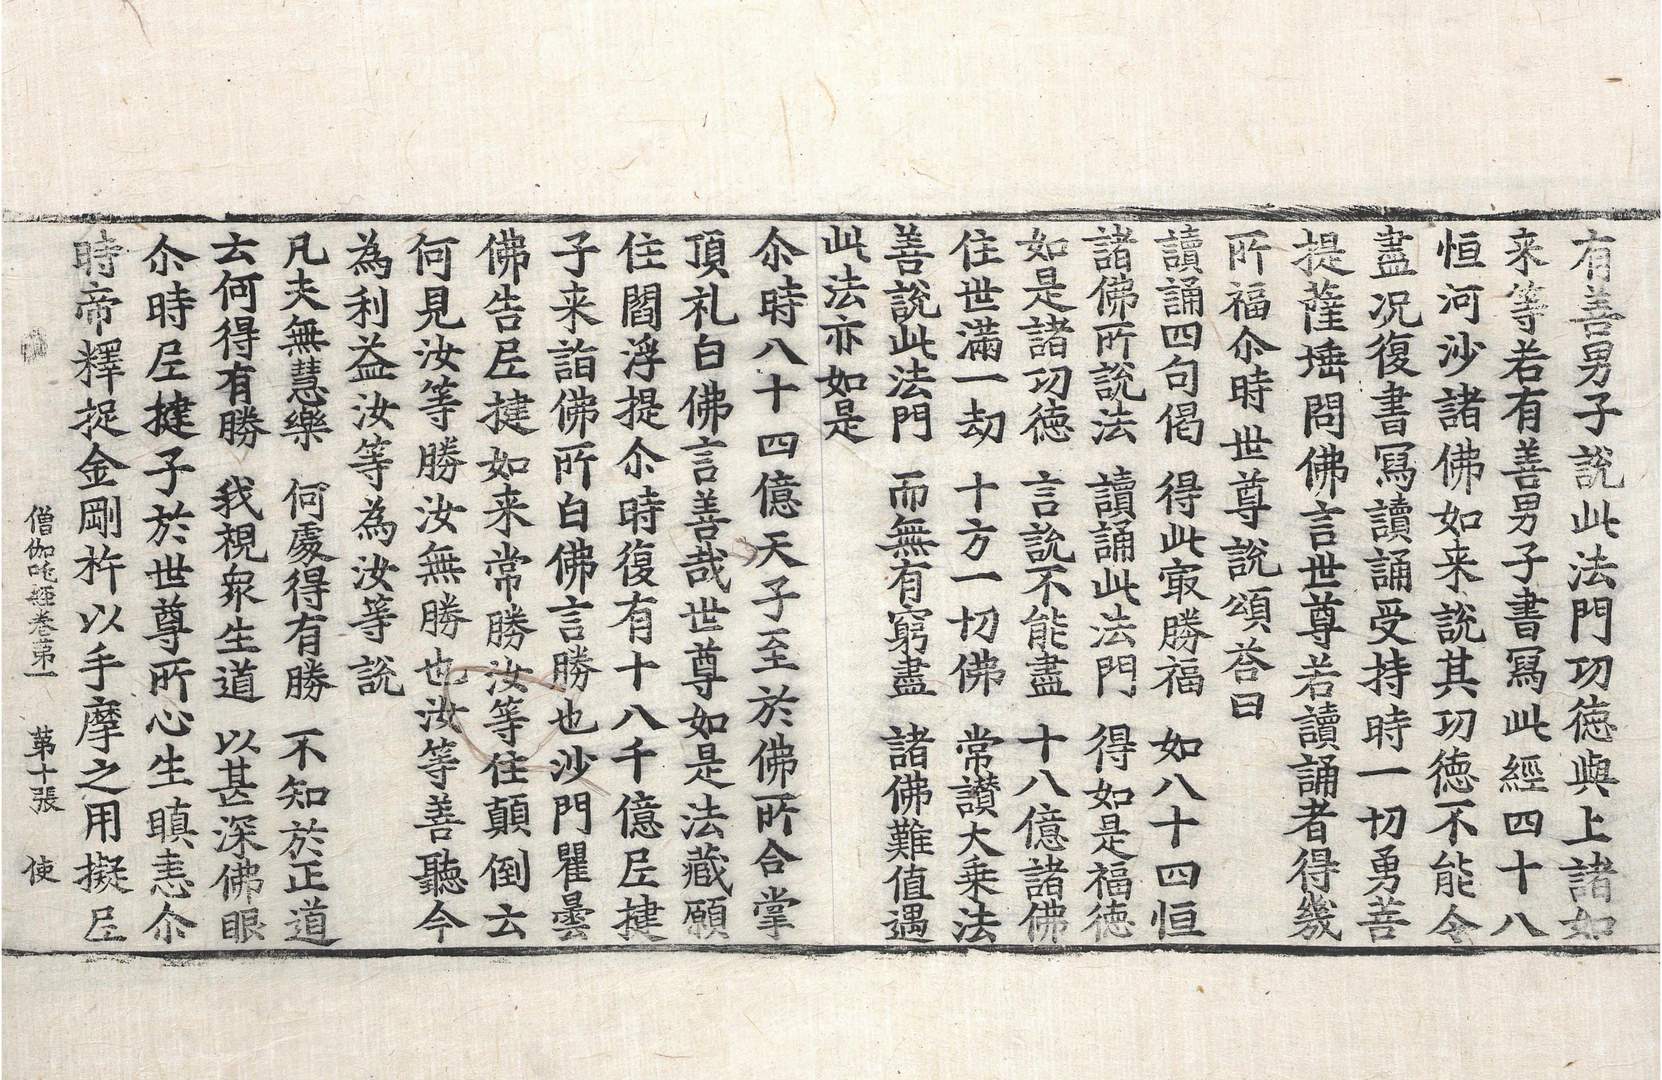 有善男子說此法門功德與上諸如
来等若有善男子書寫此經四十八
恒河沙諸佛如来說其功德不能令
盡况復書寫讀誦受持時一切勇菩
提薩埵問佛言世尊若讀誦者得幾
所福尒時世尊說頌荅曰
讀誦四句偈　得此㝡勝福　如八十四恒
諸佛所說法　讀誦此法門　得如是福德
如是諸功德　言說不能盡　十八億諸佛
住世滿一劫　十方一切佛　常讃大乗法
善說此法門　而無有窮盡　諸佛難值遇
此法亦如是
尒時八十四億天子至於佛所合掌
頂礼白佛言善哉世尊如是法藏願
住閻浮提尒時復有十八千億𡰱揵
子来詣佛所白佛言勝也沙門瞿曇
佛告𡰱揵如来常勝汝等住顛倒云
何見汝等勝汝無勝也汝等善聽今
為利益汝等為汝等說
凡夫無慧樂　何處得有勝　不知於正道
云何得有勝　我視衆生道　以甚深佛眼
尒時𡰱揵子於世尊所心生瞋恚尒
時帝釋捉金剛杵以手摩之用擬𡰱
僧伽吒経卷苐一　苐十張　使